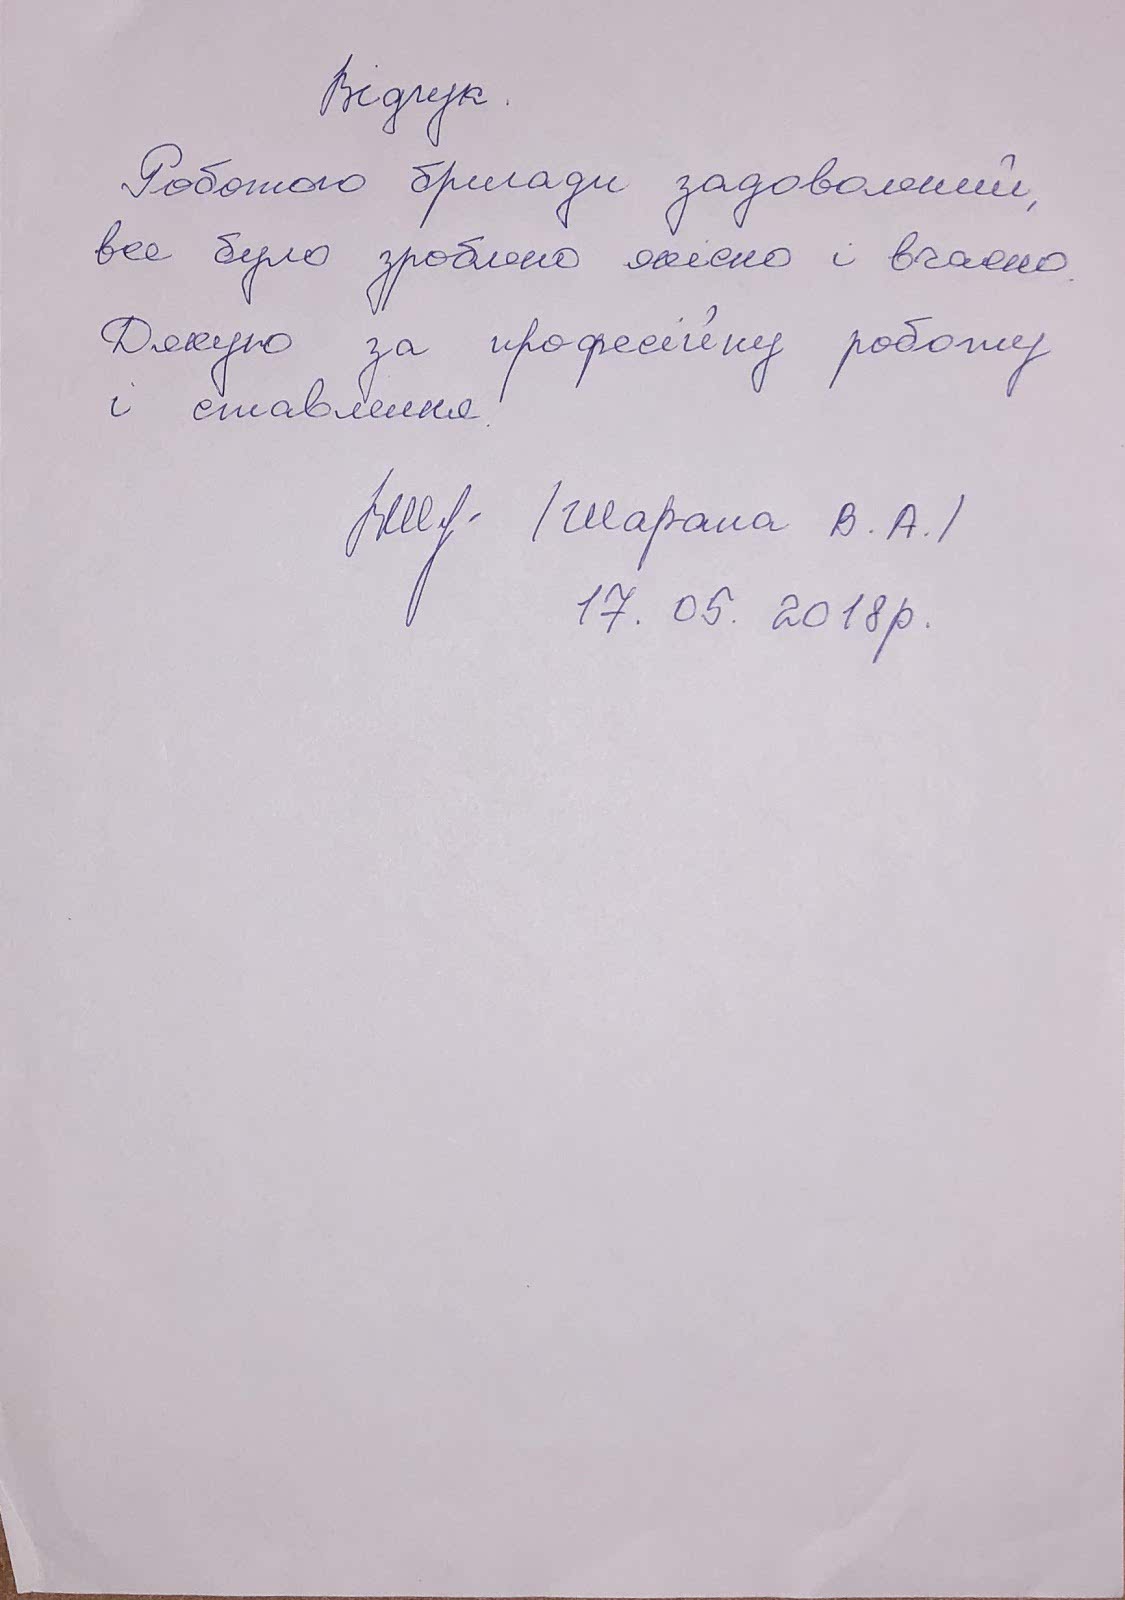 Відгук.
Роботою бригади задоволений,
все було зроблено якісно і вчасно.
Дякую за професійну роботу
і ставлення.
/Шарапа В. А./
17. 05. 2018р.